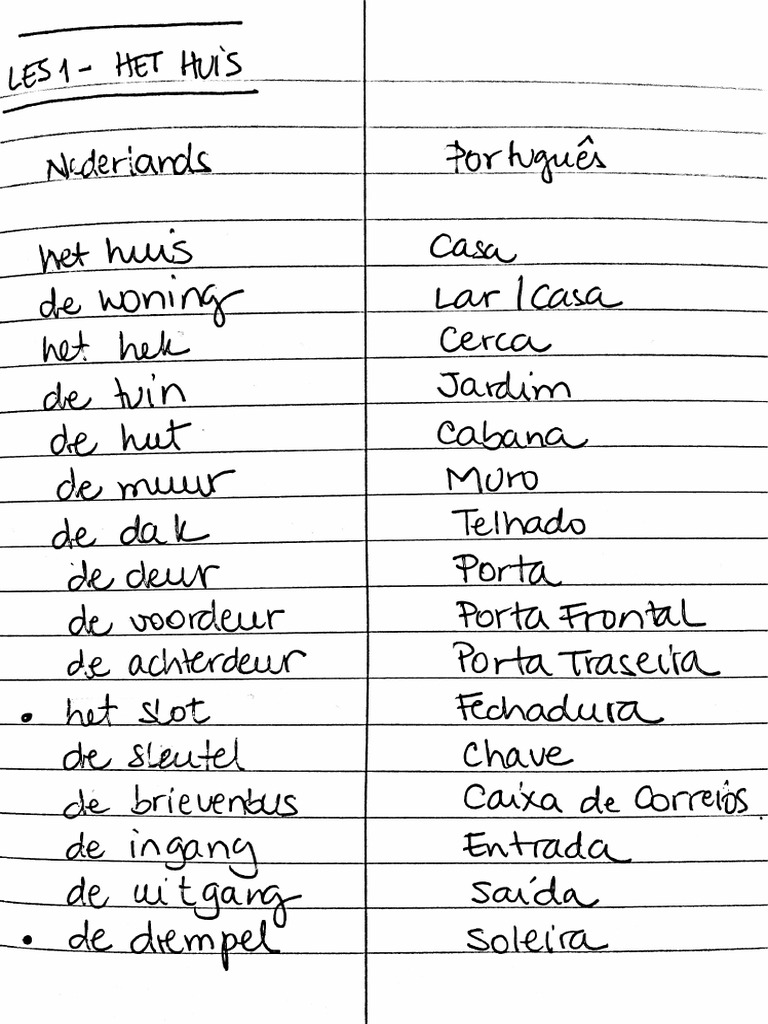 LES 1 - HET HUIS
Nederlands Português
het huis Casa
de woning Lar / Casa
het hek Cerca
de tuin Jardim
de hut Cabana
de muur Muro
de dak Telhado
de deur Porta
de voordeur Porta Frontal
de achterdeur Porta Traseira
• het slot Fechadura
de sleutel Chave
de brievenbus Caixa de Correios
de ingang Entrada
de uitgang Saída
• de drempel Soleira